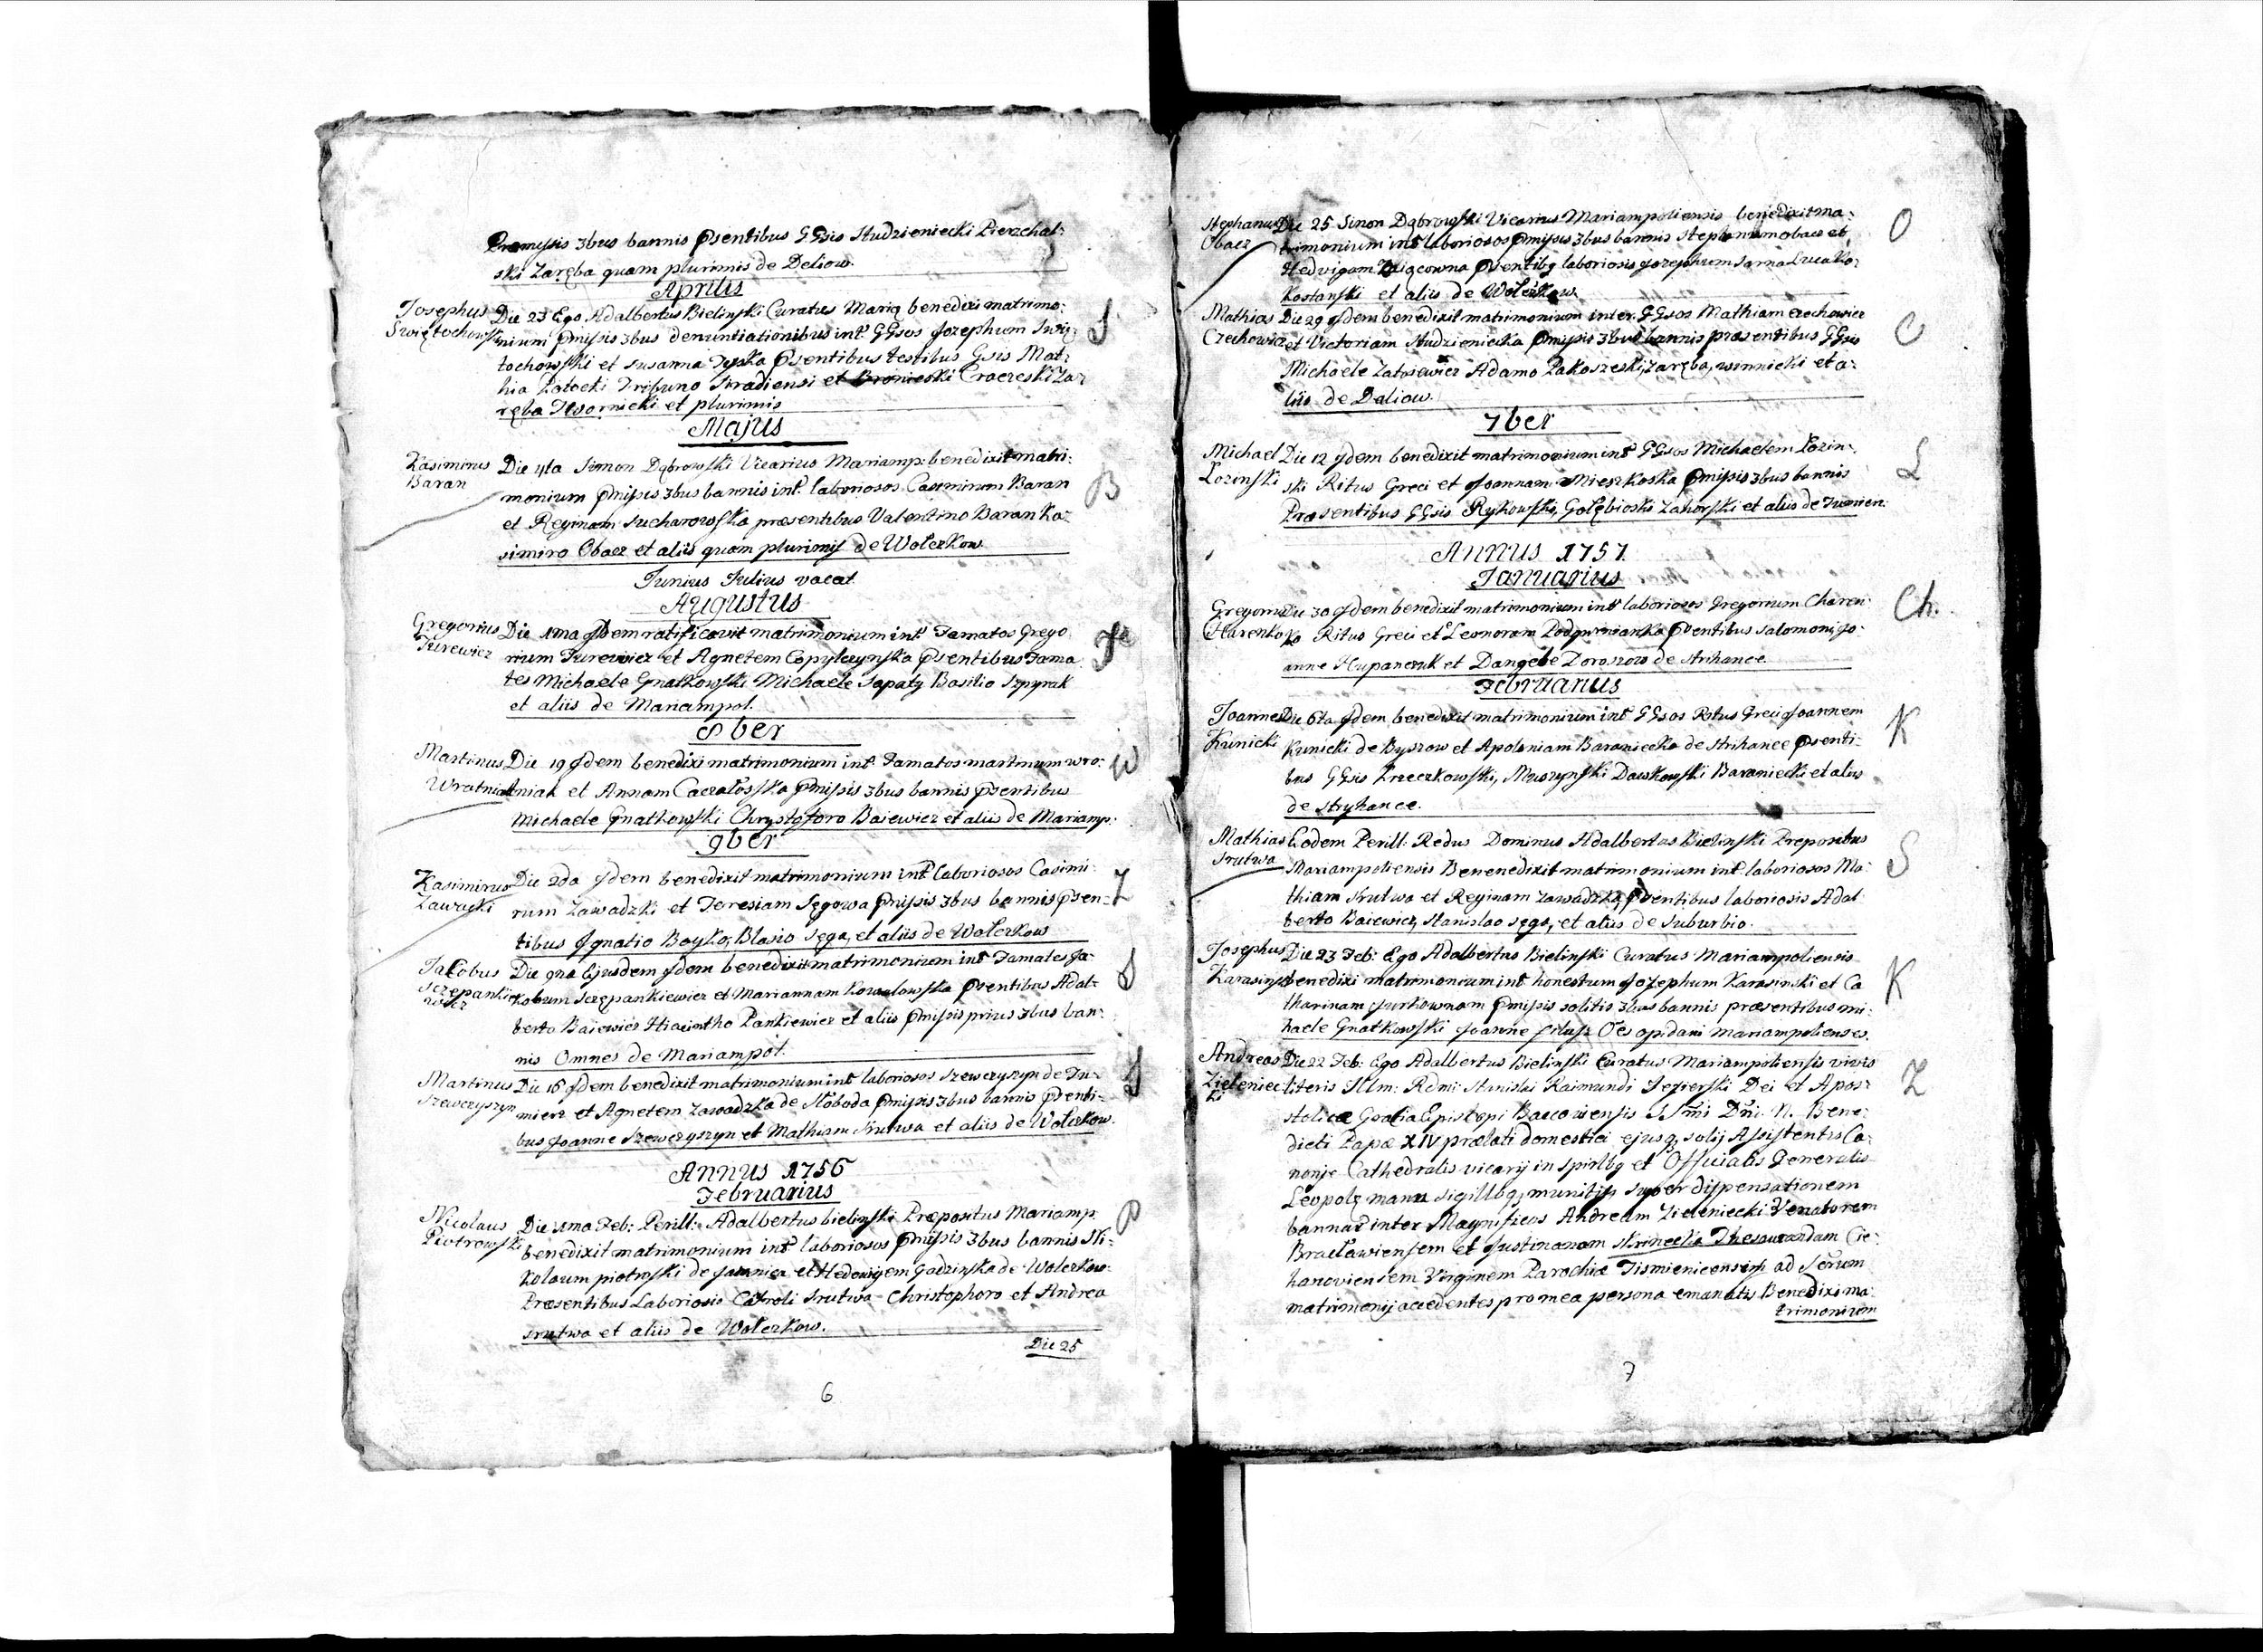 Præmissis 3bus bannis psentibus GGsis Studzieniecki Pierzchal:
ski Zaręba quam plurimis de Deliow.
Aprilis
Josephus Swiętochowski
Die 23 Ego Adalbertus Bielinski Curatus Mariæ benedixi matrimo:
nium pmissis 3bus denuntiationibus int. GGsos Jozephum Swię
tochowski et Susanna psentibus testibus Gsis Mat:
hia Potocki Tribuno et Bronieski Za
ręba et plurimis
Majus
Kasimirus Baran
Die 4ta Simon Dąbrowski Vicarius Mariamp: benedixit matri:
monium pmissis 3bus bannis int. laboriosos Casimirum Baran
et Reginam Sucharowska præsentibus Valentino Baran Ka:
simiro Obacz et aliis quam plurimis de Wolczkow
Junius Julius vacat.
Augustus
Gregorius Jurewicz
Die 1ma Idem ratificavit matrimonium int Famatos Grego
rium Jurewicz et Agnetem Copylczynska psentibus Fama
tes Michaele Gnatkowski Michaele Sapaty Basilio Szpyrak
et aliis de Mariampol.
8ber
Martinus Wratniak
Die 19 Idem benedixi matrimonium int. Famatos martinum wro:
tniak et Annam pmissis 3bus bannis psentibus
Michaele Gnatkowski Chrystoforo Baiewicz et aliis de Mariamp:
9ber
Kasimirus Zawacki
Die 2da Idem benedixit matrimonium int laboriosos Casimi
rum Zawadzki et Teresiam Sęgowa pmissis 3bus bannis psen:
tibus Ignatio Boyko, Blasio Sęga, et aliis de Wolczkow
Jacobus Sczepankiewicz
Die 9na Ejusdem Idem benedixit matrimonium int Famates Ja:
kobum Szczępankiewicz et Mariannam Kowalowska psentibus Adal:
berto Baiewicz Hiacintho Pankiewicz et aliis pmissis prius 3bus ban:
nis Omnes de Mariampol.
Martinus Szewczyszyn
Die 16 Idem benedixit matrimonium int laboriosos Szewczyszyn de Tu:
mierz et Agnetem Zawadzka de Słoboda pmissis 3bus bannis psenti:
bus Joanne Szewczyszyn et Mathiam Srutwa et aliis de Wolczkow.
Annus 1756
Februarius
Nicolaus Piotrowski
Die 1ma Feb: Perill: Adalbertus bielinski Præpositus Mariamp:
benedixit matrimonium int laboriosos pmissis 3bus bannis Ni:
kolaum piotrofski de Jamnica et Hedwigem Gadzinska de Wolczkow
Præsentibus Laboriosis Caroli Srutwa Christophoro et Andrea
Srutwa et aliis de Wołczkow.
Die 25
6
Stephanus Obacz
Die 25 Simon Dąbrowski Vicarius Mariampoliensis benedixit ma:
trimonium int laboriosos pmissis 3bus bannis Stephanum Obacz et
Hedvigam psentibq laboriosis Jozephum Sarna Luca Ko:
kostanski et aliis de Wolczkow
Mathias Czechowicz
Die 29 Idem benedixit matrimonium inter GGsos Mathiam Czechowicz
et Victoriam Studzieniecka pmissis 3bus bannis præsentibus GGsis
Michaele Zatosiewicz Adamo Pakoszeski, Zaręba, winnicki et a:
liis de Daliow.
7ber
Michael Łozinski
Die 12 Idem benedixit matrimonium int GGsos Michaelem Łozin:
ski Ritus Greci et Joannam Mieszkoska pmissis 3bus bannis
Præsentibus GGsis Rykowski, Gołębioski Zahorski et aliis de
Annus 1757.
Januarius
Gregorius Charenko
Die 30 Idem benedixit matrimonium int laboriosos Gregorium Charen
ko Ritus Greci et Leonoram psentibus Salomoni Jo:
anne Hupanczuk et Dangele Doroszow de Strihance.
Februarius
Joannes Kunicki
Die 6ta Idem benedixit matrimonium int GGsos Ritus Greci Joannem
Kunicki de Byszow et Apoloniam Baraniecka de Strihance psenti:
bus GGsis Przeczkowski, Muszynski Dawkowski Baraniecki et aliis
de Stryhance.
Mathias Srutwa
Eodem Perill: Redus Dominus Adalbertus Bielinski Prepositus
Mariampoliensis Benenedixit matrimonium int. laboriosos Ma
thiam Srutwa et Reginam Zawadzka, psentibus laboriosis Adal
berto Baiewicz, Stanislao Sęga, et aliis de Suburbio.
Josephus Karasinski
Die 23 Feb: Ego Adalbertus Bielinski Curatus Mariampoliensis
benedixi matrimonium int honestum Jozephum Karasinski et Ca
tharinam pmissis solitis 3bus bannis præsentibus mi:
haele Gnatkowski Joanne Oes opidani Mariampolienses.
Andreas Zieleniecki
Die 22 Feb: Ego Adalbertus Bielinski Curatus Mariampoliensis vivis
literis Illm: Rdmi: Stanislai Raimundi Jezierski Dei et Apos:
stolicæ Gratia Episcopi Bacoviensis SSmi Dni. N. Bene:
dicti Papæ XIV prælati domestici ejusq, solij Assistentis Ca:
nonje Cathedralis vicarij in spirlbq et Officialis Generalis
Leopolę manu sigillbq, munitis super dispensationem
bannar inter Magnificos Andream Zieleniecki Venatorem
Bracławiensem et Justinanam Skrinecka Thesaurandam Cie:
hanoviensem Virginem Parochiæ Tismieniecensis ad
matrimonij accedentes pro mea persona emanatis Benedixi ma:
trimonium
7
S
B
Z
P
O
C
L
Ch.
K
S
K
Z